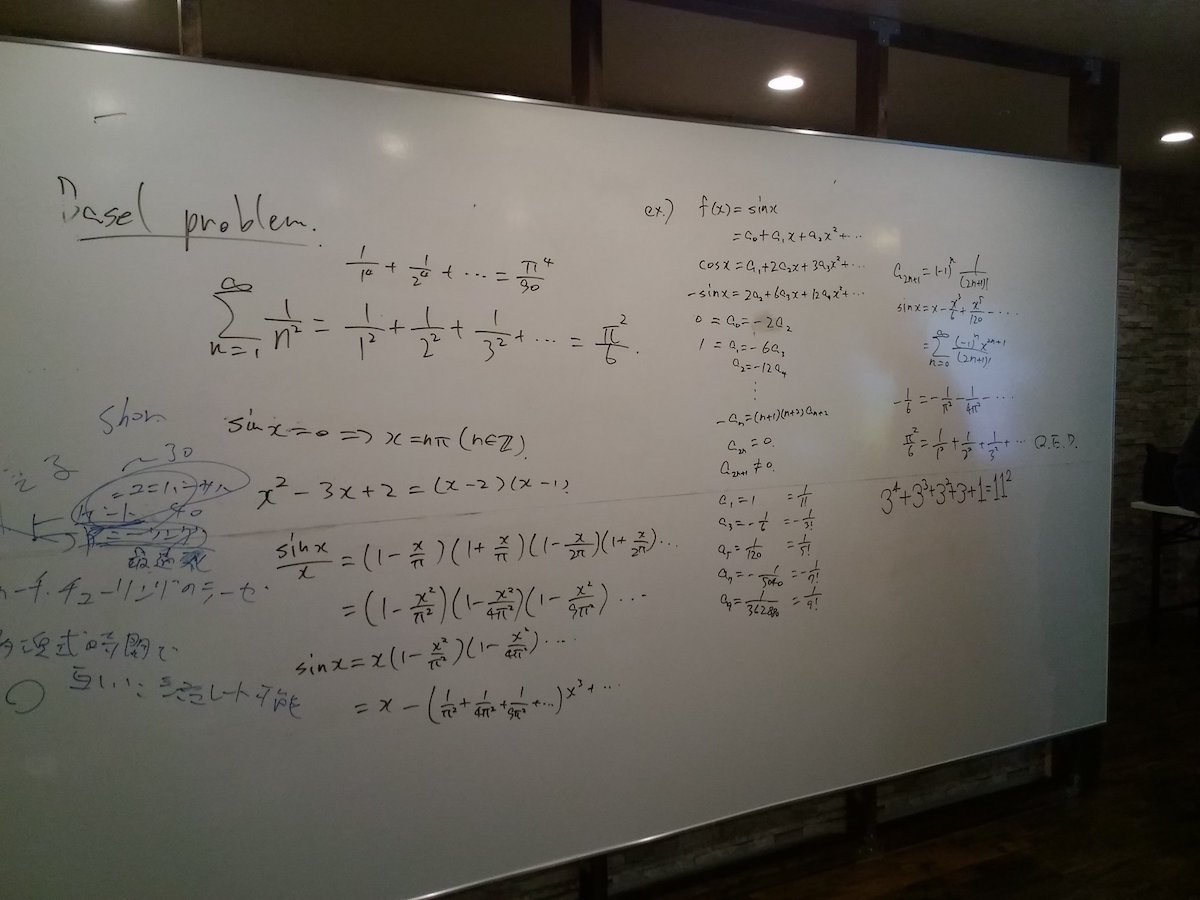 Basel problem.
1/1⁴ + 1/2⁴ + ⋯ = π⁴/90
∞∑n=1 1/n² = 1/1² + 1/2² + 1/3² + ⋯ = π²/6.
sin x = 0 => x = nπ (n∈ℤ)
x² - 3x + 2 = (x-2)(x-1)
sin x/x = (1 - x/π)(1 + x/π)(1 - x/2π)(1 + x/2π)⋯
= (1 - x²/π²)(1 - x²/4π²)(1 - x²/9π²) ⋯
sin x = x(1 - x²/π²)(1 - x²/4π²) ⋯
= x - (1/π² + 1/4π² + 1/9π² + ⋯)x³ + ⋯
~30
40
互いに
可能
ex.) f(x) = sin x
= a₀ + a₁x + a₂x² + ⋯
cos x = a₁ + 2a₂x + 3a₃x² + ⋯
-sin x = 2a₂ + 6a₃x + 12a₄x² + ⋯
0 = a₀ = -2a₂
1 = a₁ = -6a₃
a₂ = -12a₄
⋮
-aₙ = (n+1)(n+2)aₙ₊₂
a₂ₙ = 0.
a₂ₙ₊₁ ≠ 0.
a₁ = 1 = 1/1!
a₃ = -1/6 = -1/3!
a₅ = 1/120 = 1/5!
a₇ = -1/5040 = -1/7!
a₉ = 1/362880 = 1/9!
a₂ₙ₊₁ = (-1)ⁿ 1/(2n+1)!
sin x = x - x³/6 + x⁵/120 - ⋯
= ∞∑n=0 (-1)ⁿx²ⁿ⁺¹/(2n+1)!
-1/6 = -1/π² - 1/4π² - ⋯
π²/6 = 1/1² + 1/2² + 1/3² + ⋯ Q.E.D.
3⁴+3³+3²+3+1=11²